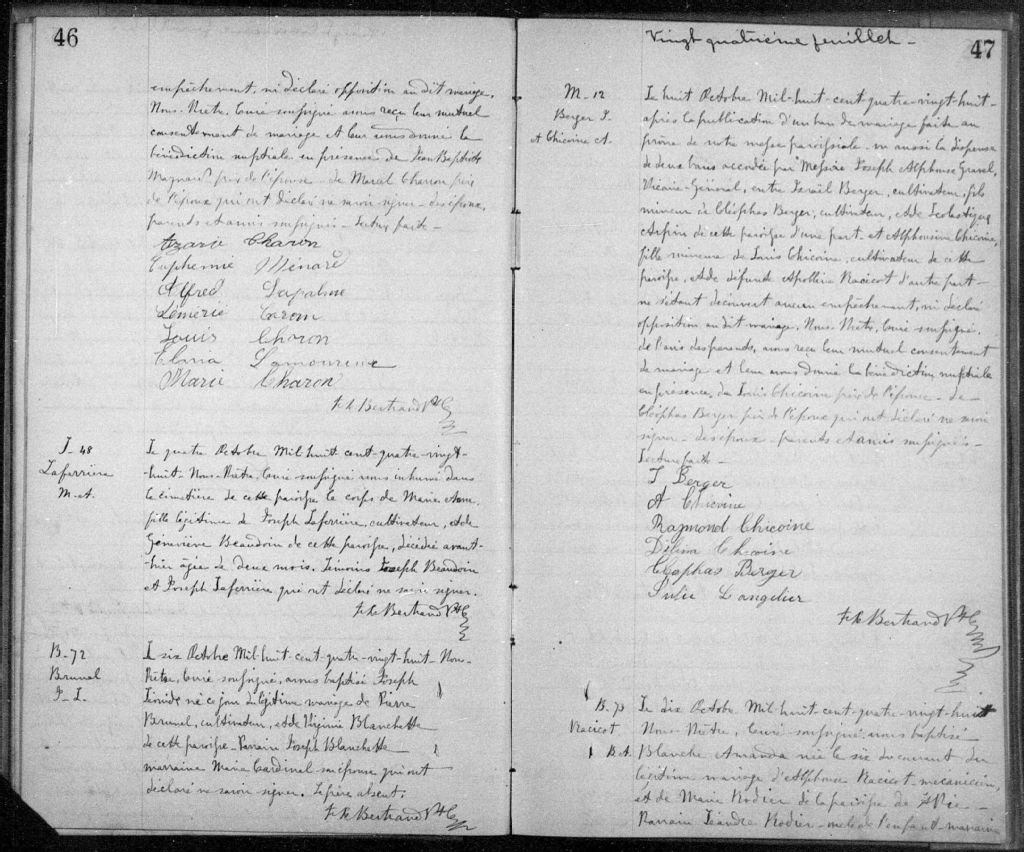 46
empêchement, ni déclaré opposition au dit mariage,
Nous Prêtre, Curé soussigné avons reçu leur mutuel
consentement de mariage et leur avons donné la
bénédiction nuptiale en présence de Jean Baptiste
père de l'épouse de Marcel Charron père
de l'époux qui ont déclaré ne savoir signer - des époux,
parents et amis soussignés - Lecture faite -
Azarie Charon
Euphemie Ménard
Alfred Lapalme
Caron
Louis Charon
Clara Lamoureux
Marie Charon
Bertrand Ptr C
S - 48
Laferrière
M. A.
Le quatre Octobre Mil-huit cent-quatre-vingt-
huit - Nous Prêtre, Curé soussigné avons inhumé dans
le cimetière de cette paroisse le corps de Marie
fille légitime de Joseph Laferrière, cultivateur, et de
Géneviève Beaudoin de cette paroisse, décédée avant-
hier âgée de deux mois. Témoins Joseph Beaudoin
et Joseph Laferrière qui ont déclaré ne savoir signer.
Bertrand Ptr C
B - 72
Brunel
J. I.
Le six Octobre Mil-huit-cent-quatre-vingt-huit - Nous
Prêtre, Curé soussigné, avons baptisé Joseph
né ce jour du légitime mariage de Pierre
Brunel, cultivateur, et de Virginie Blanchette
de cette paroisse - Parrain Joseph Blanchette
marraine Marie Cardinal son épouse qui ont
déclaré ne savoir signer. Le père absent.
Bertrand Ptr C
Vingt quatrième feuillet -
47
M - 12
Berger I.
et Chicoine A.
Le huit Octobre Mil-huit-cent-quatre-vingt-huit -
après la publication d'un ban de mariage faite au
prône de notre messe paroissiale vu aussi la dispense
de deux bans accordée par Messire Joseph Alphonse Gravel,
Vicaire-Général, entre Israël Berger, cultivateur, fils
mineur de Cléophas Berger, cultivateur, et de Scolastique
Arpin de cette paroisse d'une part - et Alphonsine Chicoine,
fille mineure de Louis Chicoine, cultivateur de cette
paroisse, et de défunte Apolline Racicot d'autre part -
ne s'étant découvert aucun empêchement, ni déclaré
opposition au dit mariage, Nous Prêtre, Curé soussigné,
de l'avis des parents, avons reçu leur mutuel consentement
de mariage et leur avons donné la bénédiction nuptiale
en présence de Louis Chicoine père de l'épouse - de
Cléophas Berger père de l'époux qui ont déclaré ne savoir
signer - des époux - parents et amis soussignés -
Lecture faite -
I Berger
A Chicoine
Raymond Chicoine
Chicoine
Cléophas Berger
Julie Langelier
Bertrand Ptr C
B. 73
Racicot
B. A.
Le dix Octobre Mil-huit-cent-quatre-vingt-huit
Nous Prêtre, Curé soussigné avons baptisé
Blanche Amanda née le six du courant du
légitime mariage d'Alphonse Racicot - mécanicien,
et de Marie Rodier de la paroisse de St Pie -
Parrain Rodier - oncle de l'enfant - marraine